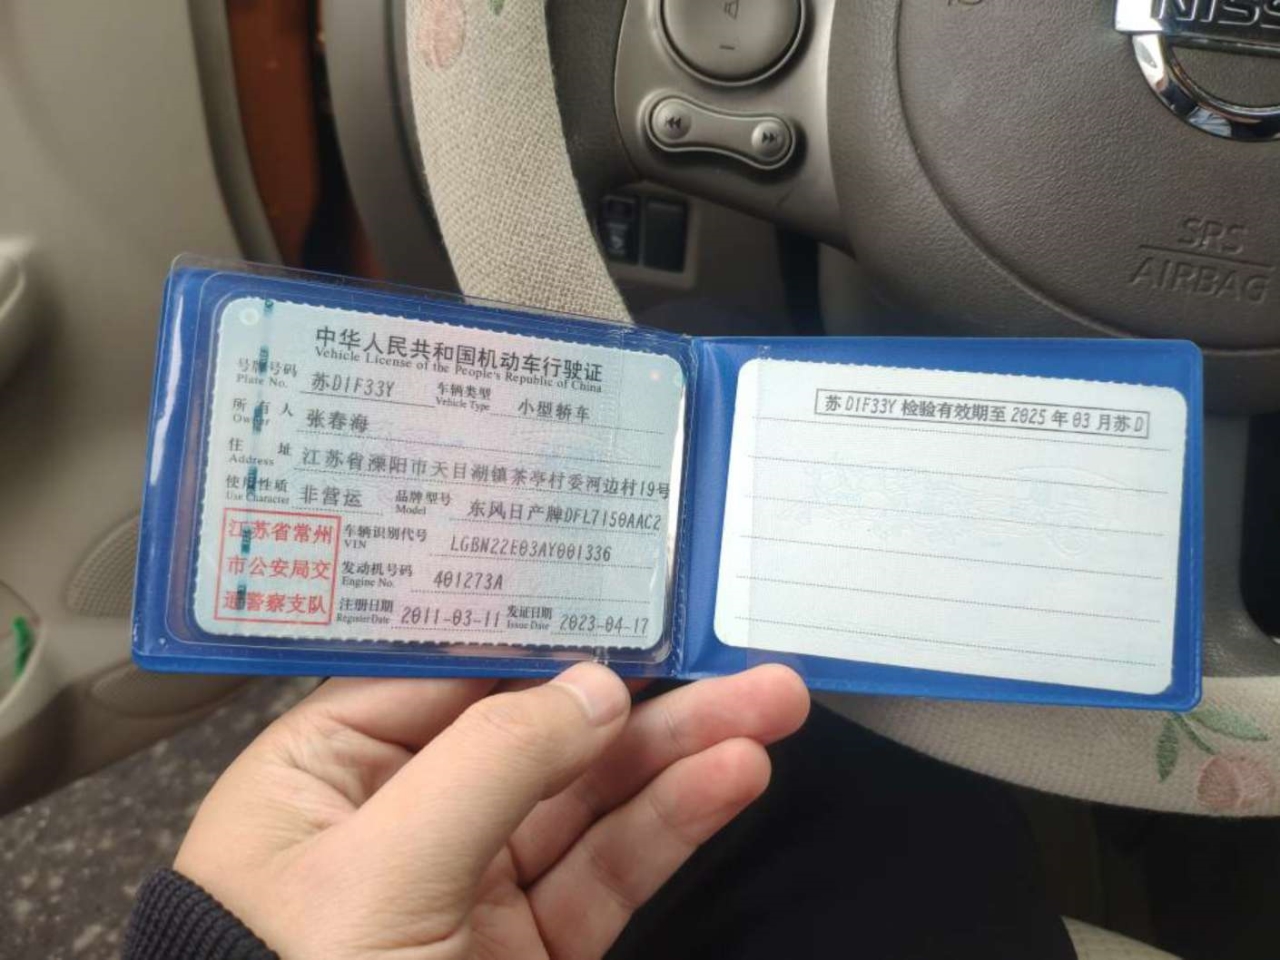 NISS
SRS
AIRBAG
中华人民共和国机动车行驶证
Vehicle License of the People's Republic of China
号牌号码 苏D1F33Y 车辆类型 小型轿车
Plate No. Vehicle Type
所有人 张春海
Owner
住址 江苏省溧阳市天目湖镇茶亭村委河边村19号
Address
使用性质 非营运 品牌型号 东风日产牌DFL7150AAC2
Use Character Model
江苏省常州
市公安局交
通警察支队
车辆识别代号 LGBN22E03AY001336
VIN
发动机号码 401273A
Engine No.
注册日期 2011-03-11 发证日期 2023-04-17
Register Date Issue Date
苏D1F33Y 检验有效期至 2025 年 03 月苏D